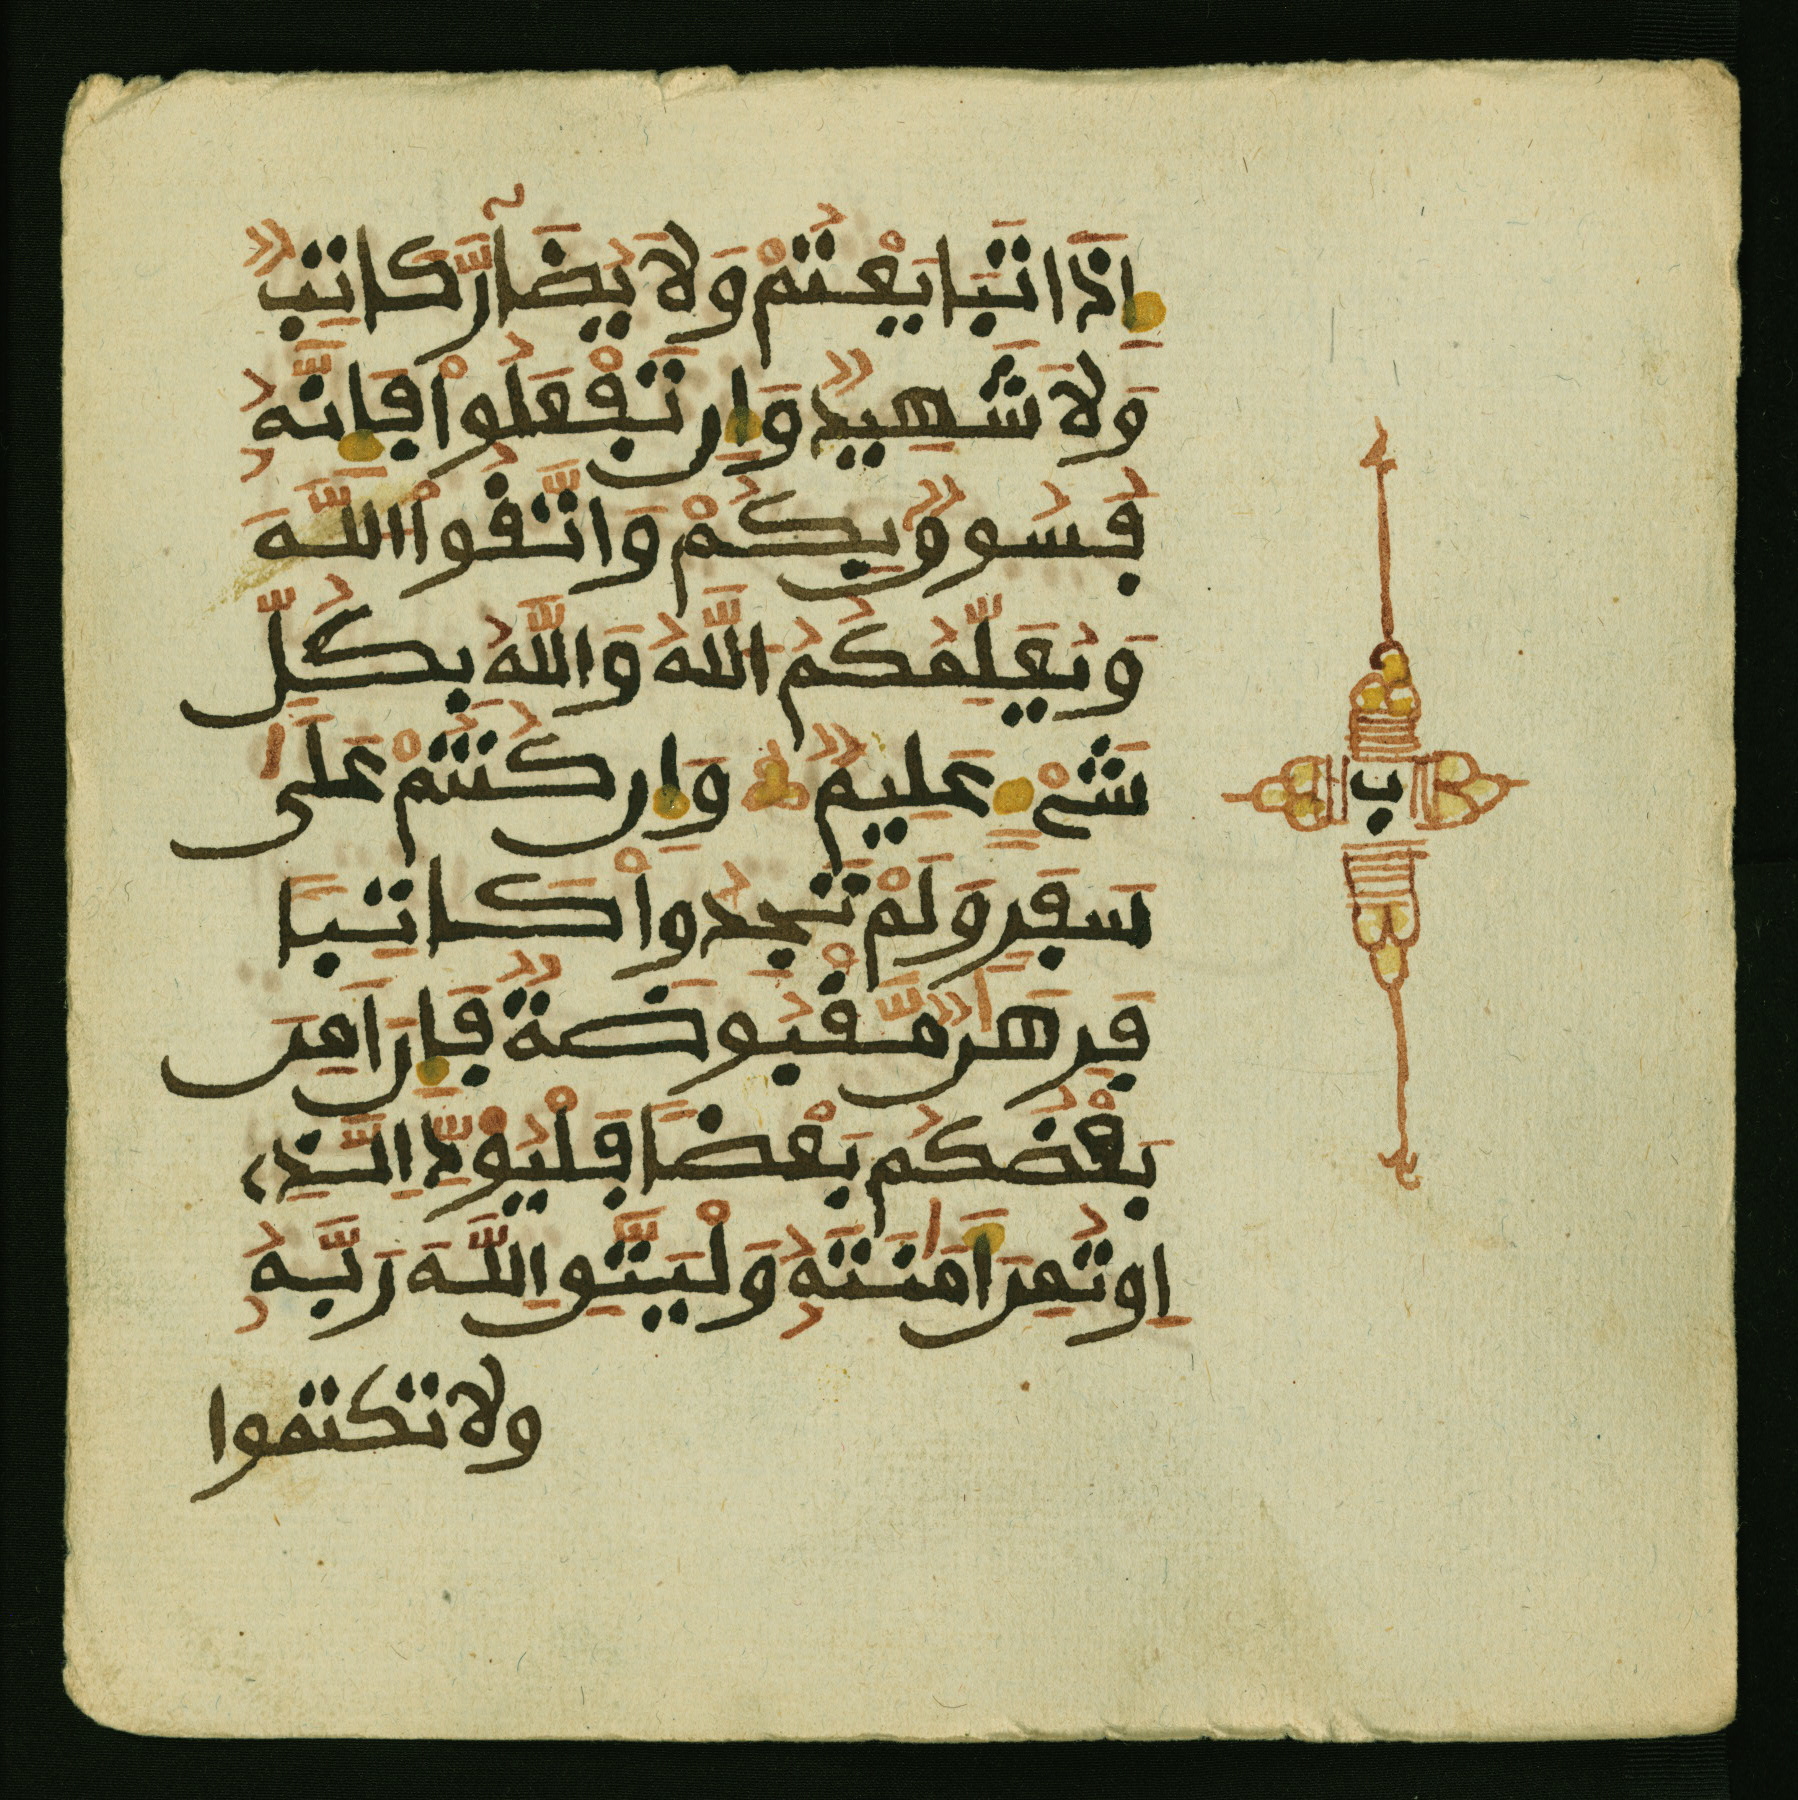 إِذَا تَبَايَعْتُمْ وَلَا يُضَآرَّ كَاتِبٌ
وَلَا شَهِيدٌ وَإِن تَفْعَلُواْ فَإِنَّهُ
فُسُوقٌ بِكُمْ وَاتَّقُواْ اللَّهَ
وَيُعَلِّمُكُمُ اللَّهُ وَاللَّهُ بِكُلِّ
شَيْءٍ عَلِيمٌ وَإِن كُنتُمْ عَلَى
سَفَرٍ وَلَمْ تَجِدُواْ كَاتِبًا
فَرِهَٰنٌ مَّقْبُوضَةٌ فَإِنْ أَمِنَ
بَعْضُكُم بَعْضًا فَلْيُوَدِّ اِلَّذِي
اِوتُمِنَ أَمَٰنَتَهُ وَلْيَتَّقِ اِللَّهَ رَبَّهُ
ولا تكتموا
ب